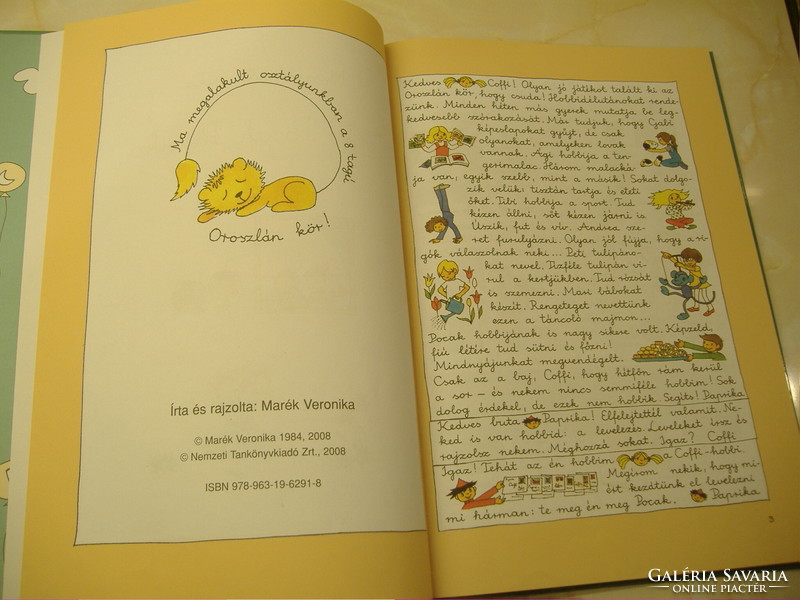 Ma megalakult osztályunkban a 8 tagú
Oroszlán kör!
Írta és rajzolta: Marék Veronika
© Marék Veronika 1984, 2008
© Nemzeti Tankönyvkiadó Zrt., 2008
ISBN 978-963-19-6291-8
Kedves Coffi! Olyan jó játékot talált ki az
Oroszlán kör, hogy csuda! Hobbidélutánokat rende-
zünk. Minden héten más gyerek mutatja be leg-
kedvesebb szórakozását. Már tudjuk, hogy Gabi
képeslapokat gyűjt, de csak
olyanokat, amelyeken lovak
vannak. Ági hobbija a ten-
gerimalac. Három malacká-
ja van, egyik szebb, mint a másik! Sokat dolgo-
zik velük: tisztán tartja és eteti
őket. Tibi hobbija a sport. Tud
kézen állni, sőt kézen járni is.
Úszik, fut és vív. Andrea sze-
ret furulyázni. Olyan jól fújja, hogy a ri-
gók válaszolnak neki... Peti tulipáno-
kat nevel. Tízféle tulipán vi-
rul a kertjükben. Tud rózsát
is szemezni. Mari bábokat
készít. Rengeteget nevettünk
ezen a táncoló majmon...
Pocak hobbijának is nagy sikere volt. Képzeld,
fiú létére tud sütni és főzni!
Mindnyájunkat megvendégelt.
Csak az a baj, Coffi, hogy hétfőn rám kerül
a sor – és nekem nincs semmiféle hobbim! Sok
dolog érdekel, de ezek nem hobbik. Segíts! Paprika
Kedves buta Paprika! Elfelejtettél valamit. Ne-
ked is van hobbid: a levelezés. Leveleket írsz és
rajzolsz nekem. Méghozzá sokat. Igaz? Coffi
Igaz! Tehát az én hobbim a Coffi-hobbi.
Megírom nekik, hogy mi-
ért kezdtünk el levelezni
mi hárman: te meg én meg Pocak. Paprika
3
GALÉRIA SAVARIA
ONLINE PIACTÉR